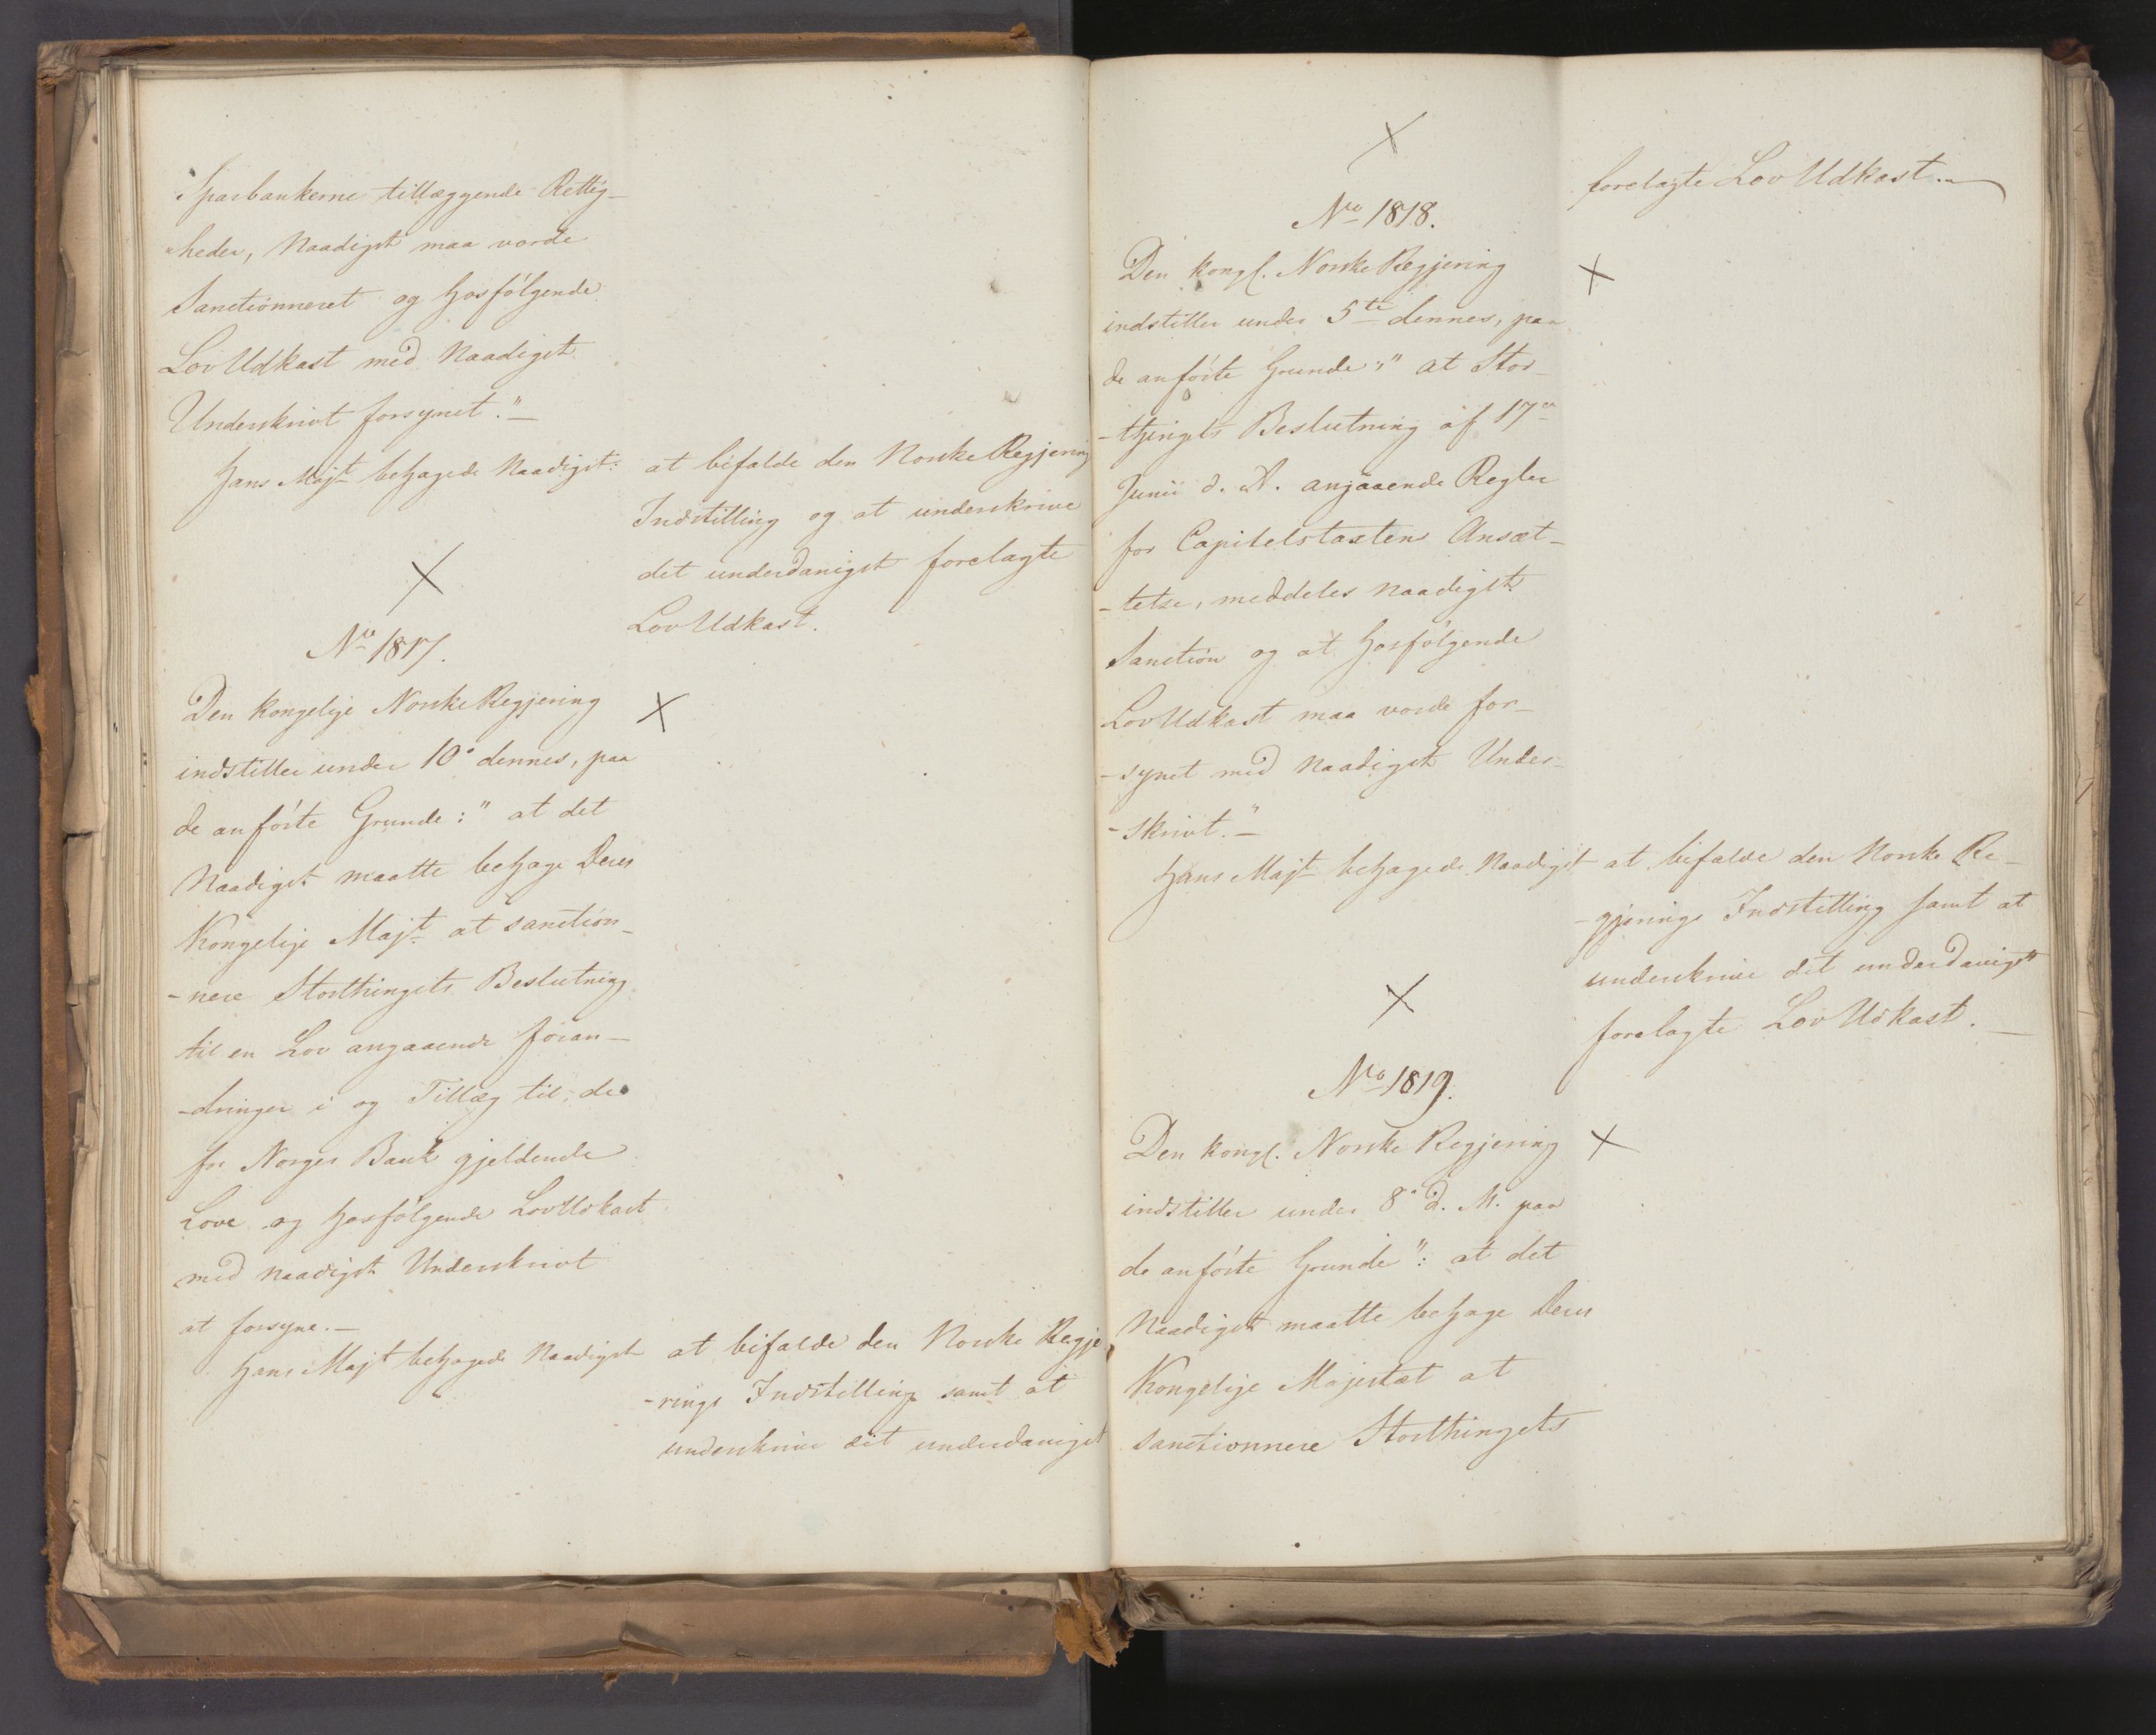 Sparbankerne tillæggende Rettig-
-heder, Naadigst maa vorde
Sanctionneret og hosfölgende
Lov Udkast med Naadigst
Underskrivt forsynet."-
Hans Majt behagede Naadigst:
at bifalde den Norske Regjering
Indstilling og at underskrive
det underdanigst forelagte
Lov Udkast.
No 1817.
Den kongelige Norske Regjering
indstiller under 10de dennes, paa
de anförte Grunde: "at det
Naadigst maatte behage Deres
Kongelige Majt at sanction-
-nere Storthingets Beslutning
til en Lov angaaende foran-
-dringer i og Tillæg til de
for Norges Bank gjeldende
Love og hosfölgende Lov Udkast
med naadigst Underskrivt
at forsyne.-
Hans Majt behagede Naadigst
at bifalde den Norske Regje
-rings Indstilling samt at
underskrive det underdanigst
forelagte Lov Udkast.-
No 1818.
Den kongl. Norske Regjering
indstiller under 5te dennes, paa
de anförte Grunde: "at Stor-
-thingets Beslutning af 17de
Junii d. A. angaaende Regler
for Capitelstaxtens Ansæt-
-telse, meddeles naadigst
Sanction og at hosfölgende
Lov Udkast maa vorde for-
-synet med naadigst Under-
-skrivt."-
Hans Majt behagede Naadigst
at bifalde den Norske Re-
-gjerings Indstilling samt at
underskrive det underdanigst
forelagte Lov Udkast.-
No 1819.
Den kongl. Norske Regjering
indstiller under 8de d. M. paa
de anförte Grunde": at det
Naadigst maatte behage Deres
Kongelige Majestæt at
sanctionnere Storthingets